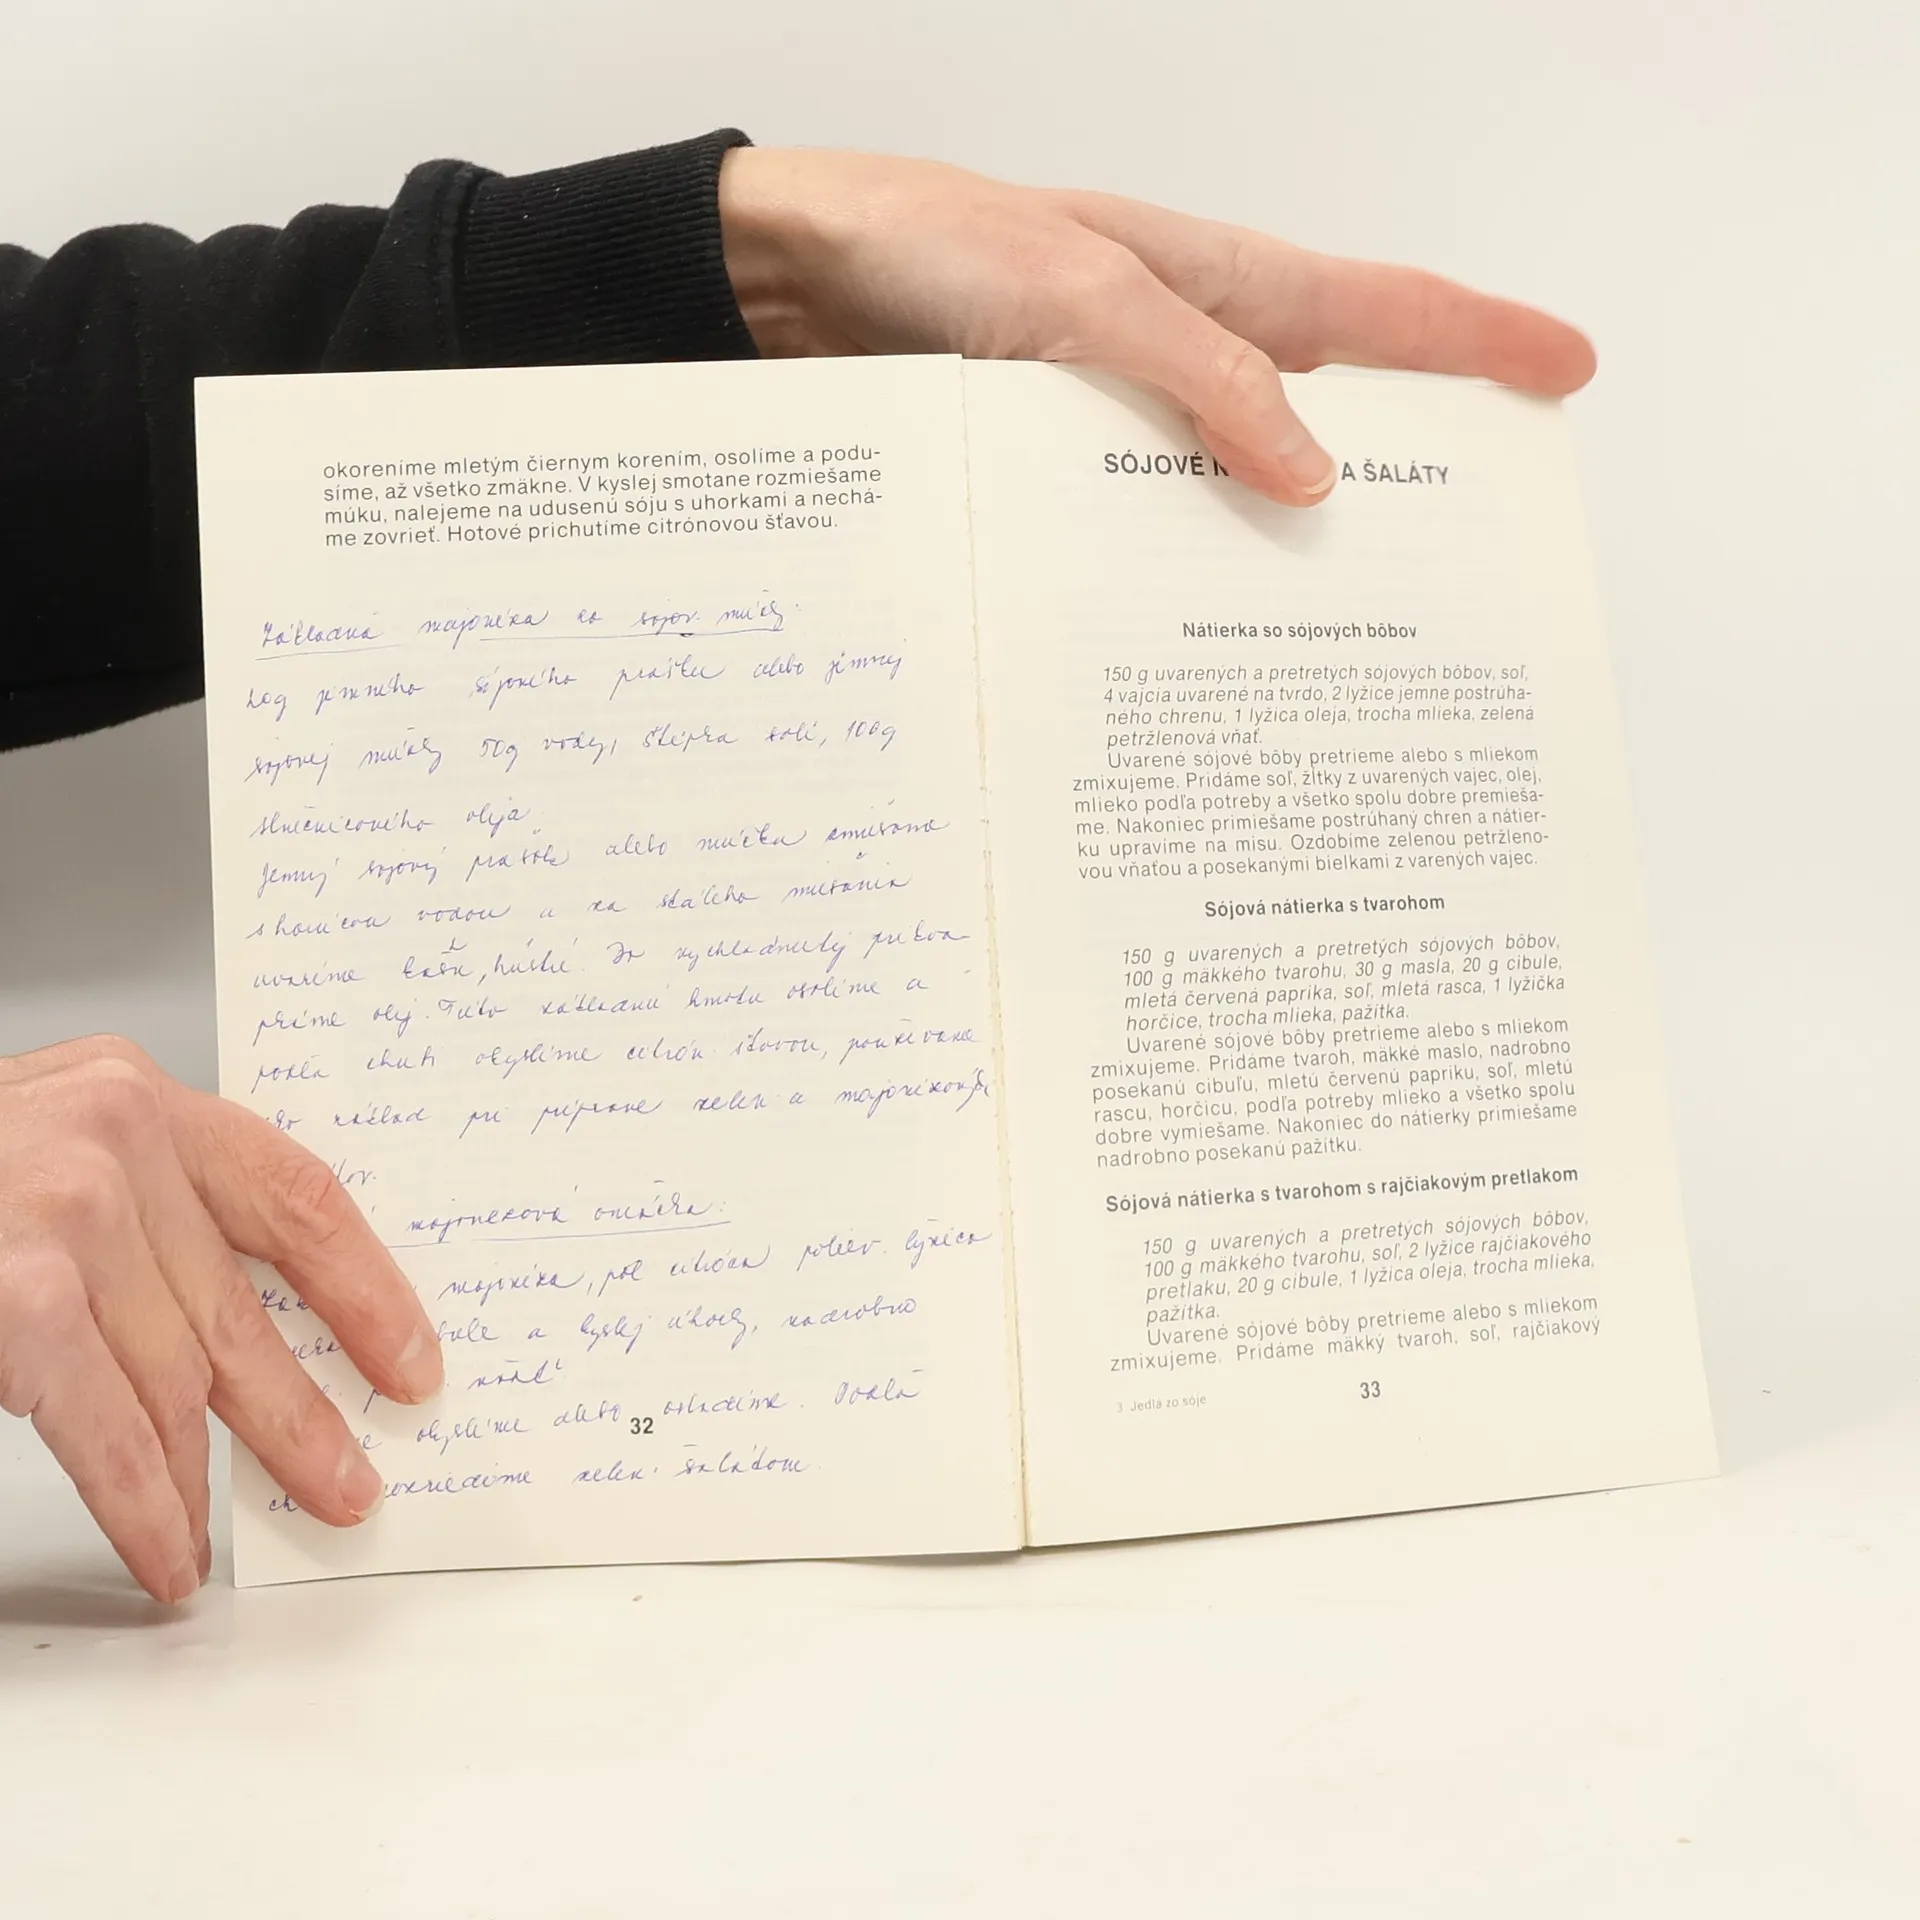 okoreníme mletým čiernym korením, osolíme a podu-
síme, až všetko zmäkne. V kyslej smotane rozmiešame
múku, nalejeme na udusenú sóju s uhorkami a nechá-
me zovrieť. Hotové prichutíme citrónovou šťavou.
Základná majonéza zo sójov. múčky.
20g jemného sójového prášku alebo jemnej
sójovej múčky 50g vody, štipka soli, 100g
slnečnicového oleja
Jemný sójový prášok alebo múčku zmiešame
s horúcou vodou a za stáleho miešania
uvaríme kašu, hustú. Do vychladnutej prikva-
pkáme olej. Túto základnú hmotu osolíme a
podľa chuti okyslíme citrón. šťavou, používame
základ pri príprave zelen. a majonézových
majonézová omáčka:
majonéza, pol citróna poliev. lyžica
a kyslej uhorky, nadrobno
vňať
okyslíme alebo osladíme. Podľa
zelen. šalátom.
32
SÓJOVÉ A ŠALÁTY
Nátierka so sójových bôbov
150 g uvarených a pretretých sójových bôbov, soľ,
4 vajcia uvarené na tvrdo, 2 lyžice jemne postrúha-
ného chrenu, 1 lyžica oleja, trocha mlieka, zelená
petržlenová vňať.
Uvarené sójové bôby pretrieme alebo s mliekom
zmixujeme. Pridáme soľ, žĺtky z uvarených vajec, olej,
mlieko podľa potreby a všetko spolu dobre premieša-
me. Nakoniec primiešame postrúhaný chren a nátier-
ku upravíme na misu. Ozdobíme zelenou petržleno-
vou vňaťou a posekanými bielkami z varených vajec.
Sójová nátierka s tvarohom
150 g uvarených a pretretých sójových bôbov,
100 g mäkkého tvarohu, 30 g masla, 20 g cibule,
mletá červená paprika, soľ, mletá rasca, 1 lyžička
horčice, trocha mlieka, pažítka.
Uvarené sójové bôby pretrieme alebo s mliekom
zmixujeme. Pridáme tvaroh, mäkké maslo, nadrobno
posekanú cibuľu, mletú červenú papriku, soľ, mletú
rascu, horčicu, podľa potreby mlieko a všetko spolu
dobre vymiešame. Nakoniec do nátierky primiešame
nadrobno posekanú pažítku.
Sójová nátierka s tvarohom s rajčiakovým pretlakom
150 g uvarených a pretretých sójových bôbov,
100 g mäkkého tvarohu, soľ, 2 lyžice rajčiakového
pretlaku, 20 g cibule, 1 lyžica oleja, trocha mlieka,
pažítka.
Uvarené sójové bôby pretrieme alebo s mliekom
zmixujeme. Pridáme mäkký tvaroh, soľ, rajčiakový
3 Jedlá zo sóje
33